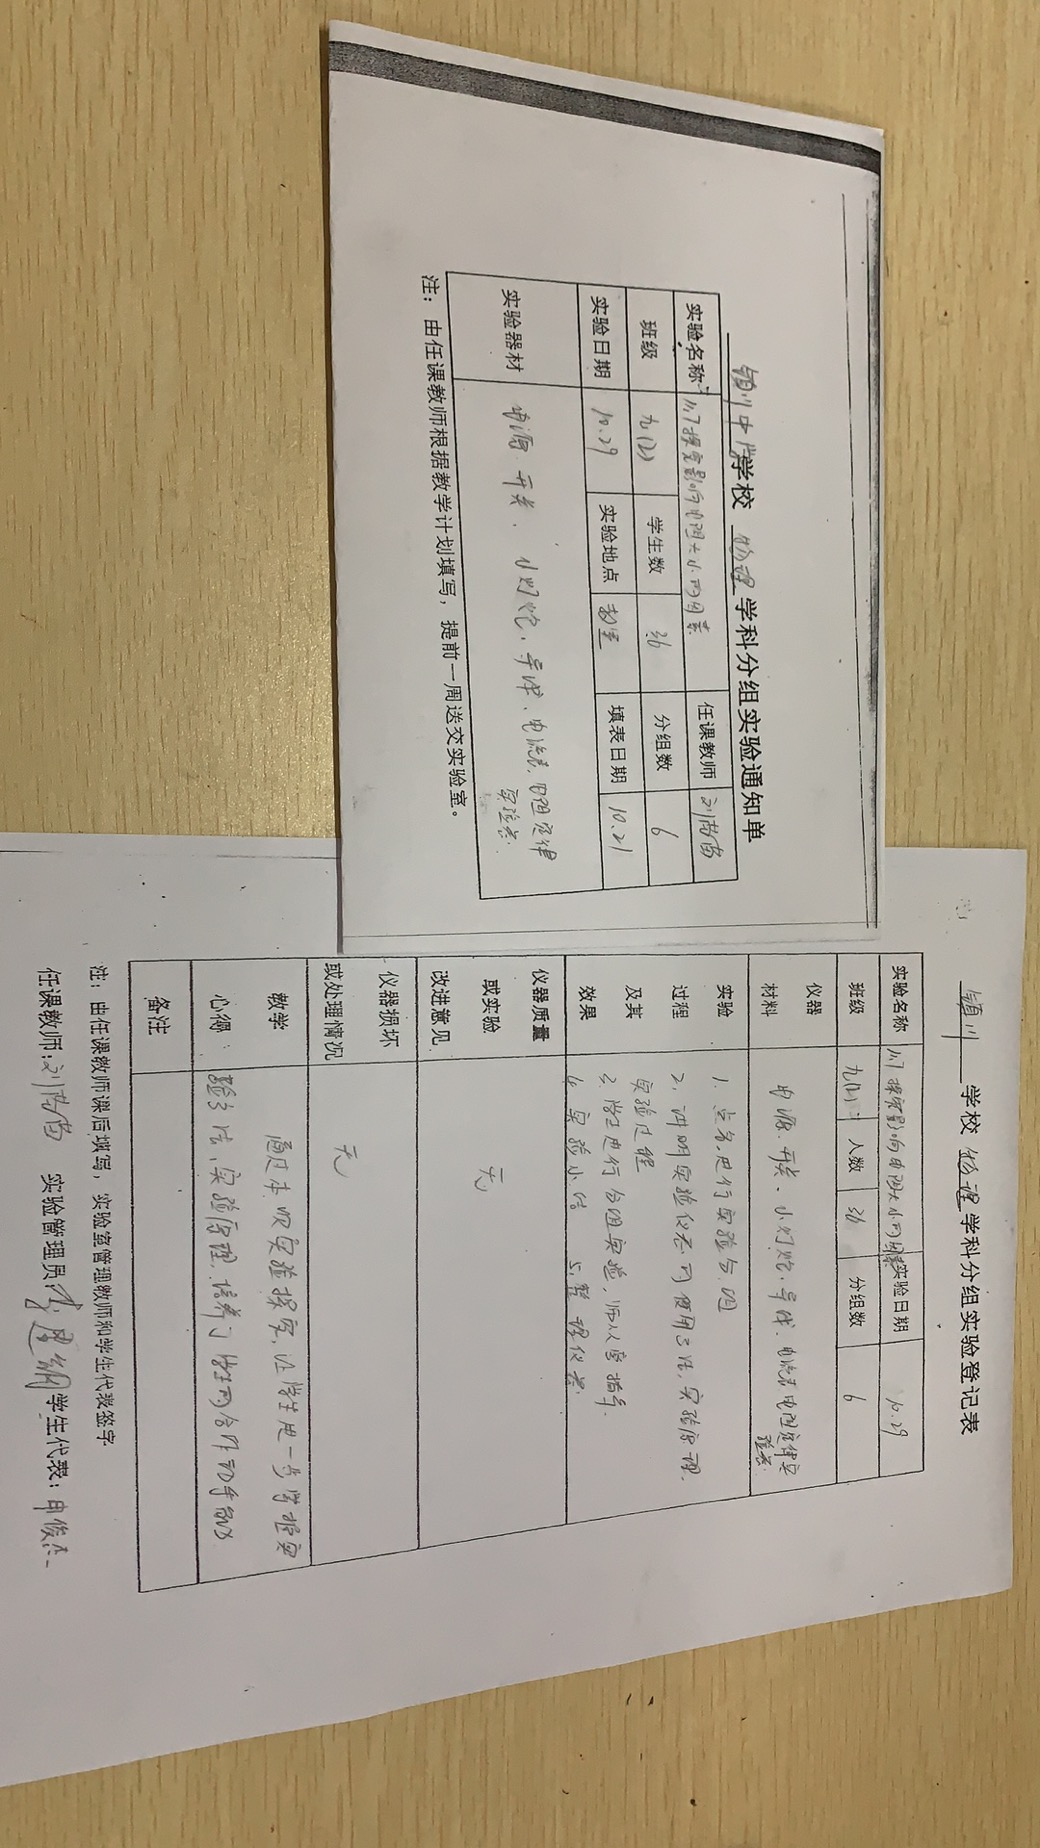 镇川中学学校 物理 学科分组实验通知单
实验名称 11.7探究影响电阻大小的因素 任课教师
班级 九(2) 学生数 36 分组数 6
实验日期 10.29 实验地点 教室 填表日期 10.21
实验器材 电源、开关、小灯炮、导线、电流表、电阻定律
实验器
注：由任课教师根据教学计划填写，提前一周送交实验室。
镇川 学校 物理 学科分组实验登记表
实验名称 11.7 探究影响电阻大小的因素 实验日期 10.29
班级 九(2) 人数 36 分组数 6
仪器
材料
电源、开关、小灯炮、导线、电流表电阻定律实
验器
实验
过程
及其
效果
1、点名，进行实验分组
2、讲明实验仪器的使用方法，实验原理、
实验过程
3、学生进行分组实验，师从旁指导。
4、实验小结 5、整理仪器
仪器质量
或实验
改进意见
无
仪器损坏
或处理情况
无
教学
心得：
通过本次实验探究，让学生进一步掌握实
验方法、实验原理，培养了学生的合作动手能力
备注
注：由任课教师课后填写，实验室管理教师和学生代表签字
任课教师： 实验管理员： 学生代表：